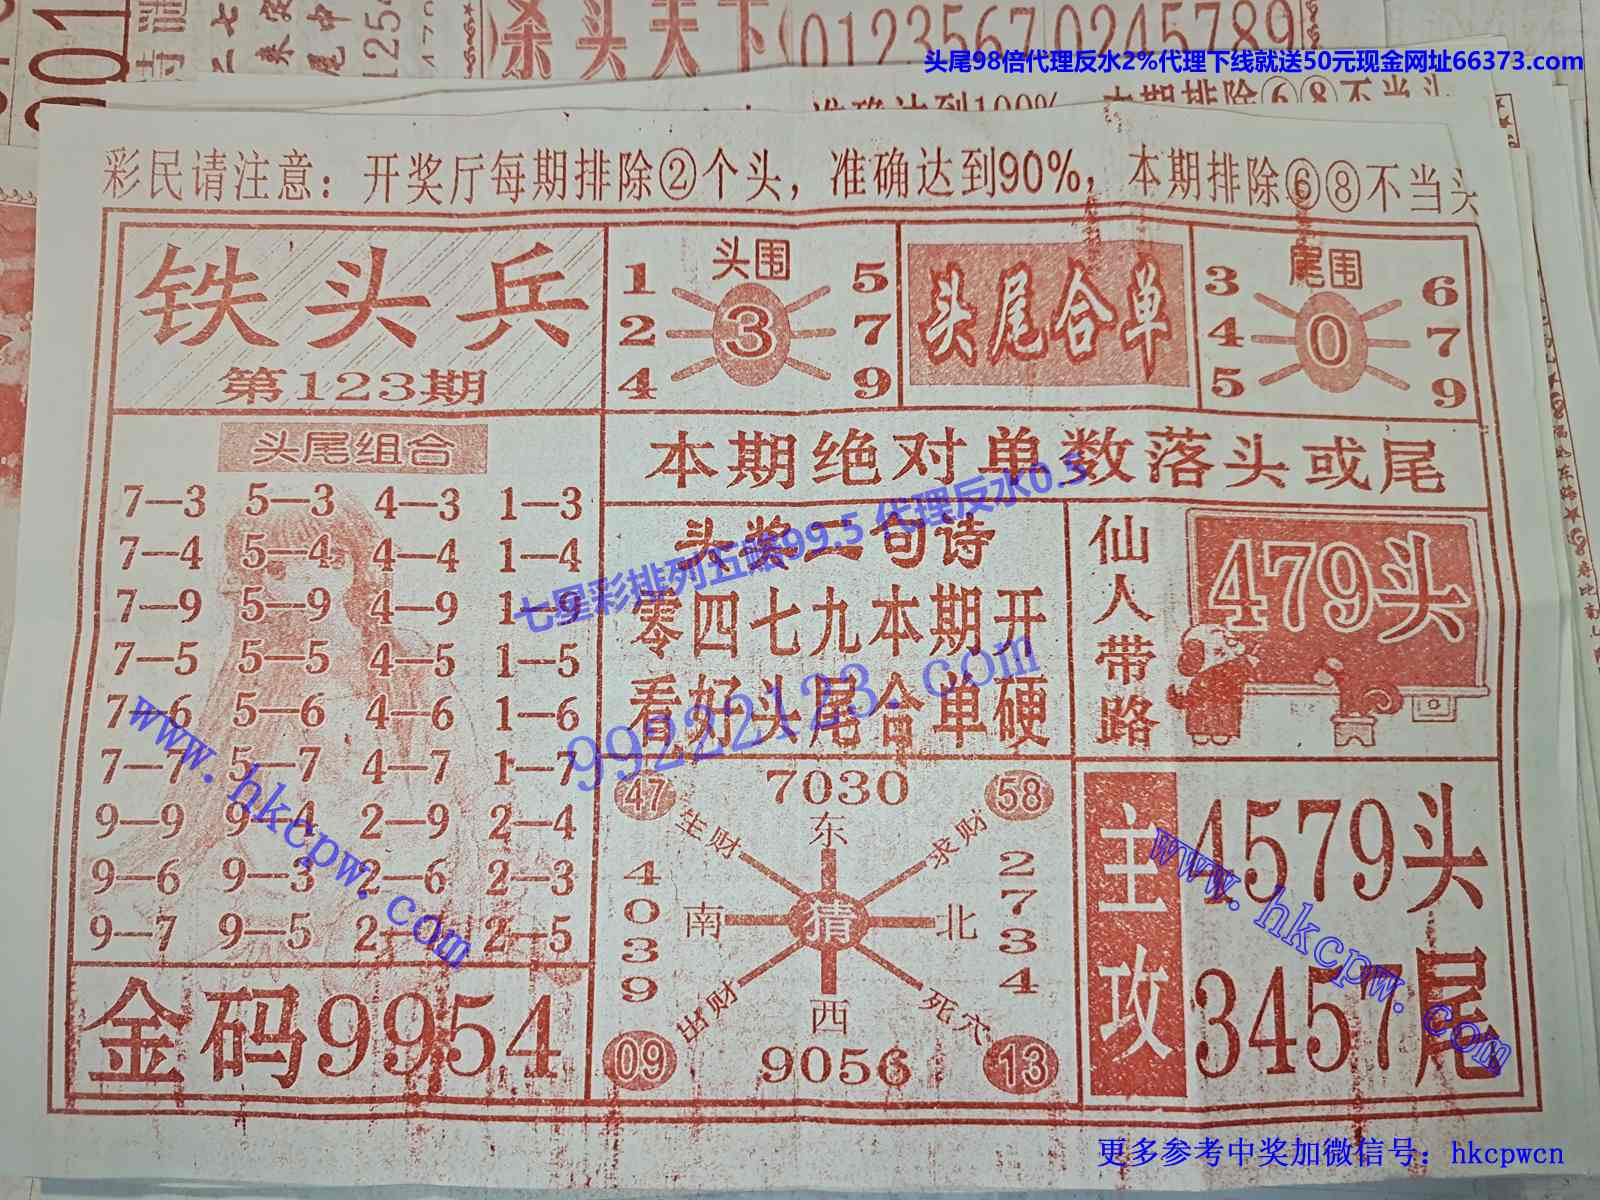 杀头天下
0123567
0245789
头尾98倍代理反水2%代理下线就送50元现金网址66373.com
准确达到100%，本期排除⑥⑧不当头
彩民请注意：开奖厅每期排除②个头，准确达到90%，本期排除⑥⑧不当头
铁头兵
第123期
头围
1 5
2 3 7
4 9
头尾合单
尾围
3 6
4 0 7
5 9
头尾组合
7—3 5—3 4—3 1—3
7—4 5—4 4—4 1—4
7—9 5—9 4—9 1—9
7—5 5—5 4—5 1—5
7—6 5—6 4—6 1—6
7—7 5—7 4—7 1—7
9—9 9—4 2—9 2—4
9—6 9—3 2—6 2—3
9—7 9—5 2— 2—5
金码9954
本期绝对单数落头或尾
头奖二句诗
零四七九本期开
看好头尾合单硬
仙人带路
479头
47 7030 58
生财 东 求财
4039
南 猜 北
2734
出财 西 死穴
09 9056 13
主攻
4579头
3457尾
七星彩排列五赔99.5 代理反水0.5
99222123.com
www.hkcpw.com
www.hkcpw.com
更多参考中奖加微信号：hkcpwcn